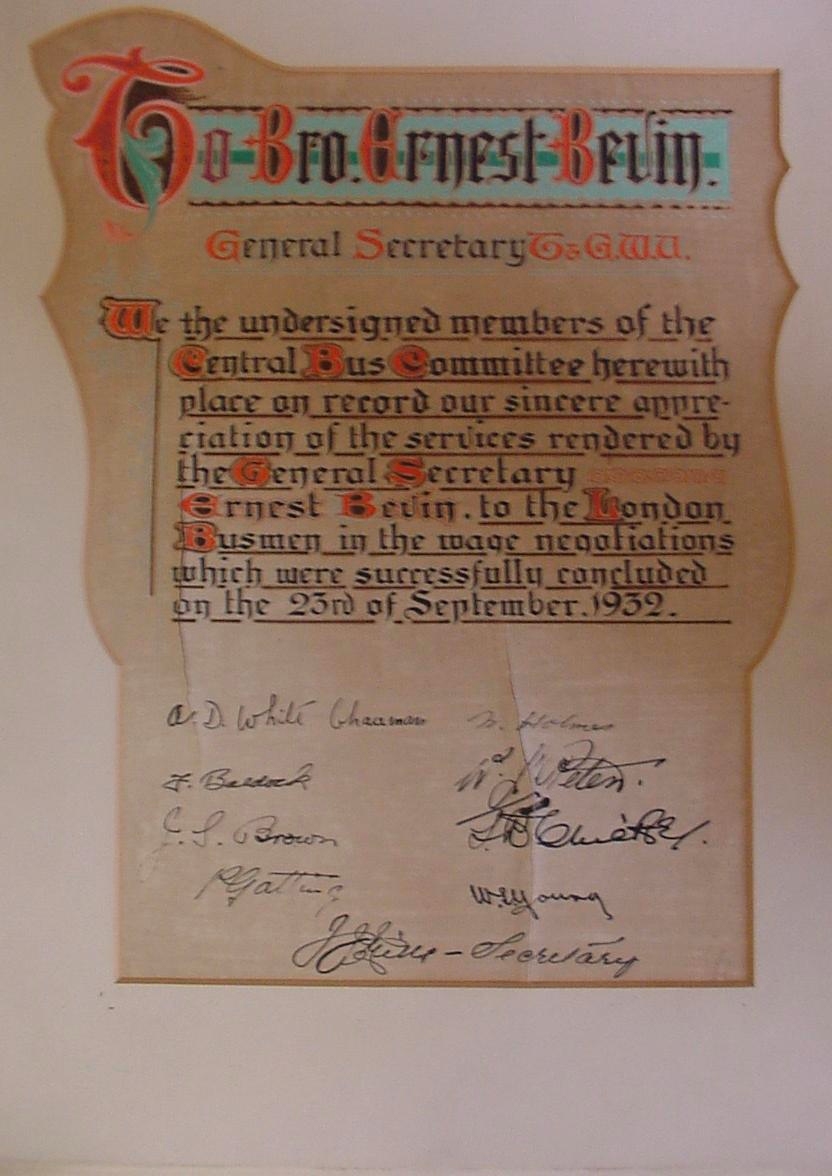 To Bro. Ernest Bevin.
General Secretary T&G.W.U.
We the undersigned members of the
Central Bus Committee herewith
place on record our sincere appre-
ciation of the services rendered by
the General Secretary
Ernest Bevin. to the London
Busmen in the wage negotiations
which were successfully concluded
on the 23rd of September. 1932.
A. D. White Chairman
Holmes
F. Baldock
J. S. Brown
W. Young
Secretary